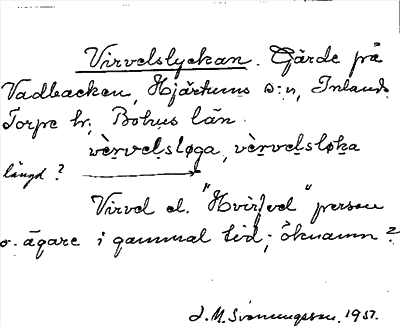 Virvelslyckan. Gärde på
Vadbacken, Hjärtums s:n, Inlands
Torpe hr, Bohus län.
vèrvelsløga, vèrvelsløka
längd?
Virvel el. "Hvirfvel" person
o. ägare i gammal tid; öknamn?
J. M. Svenningsson. 1957.